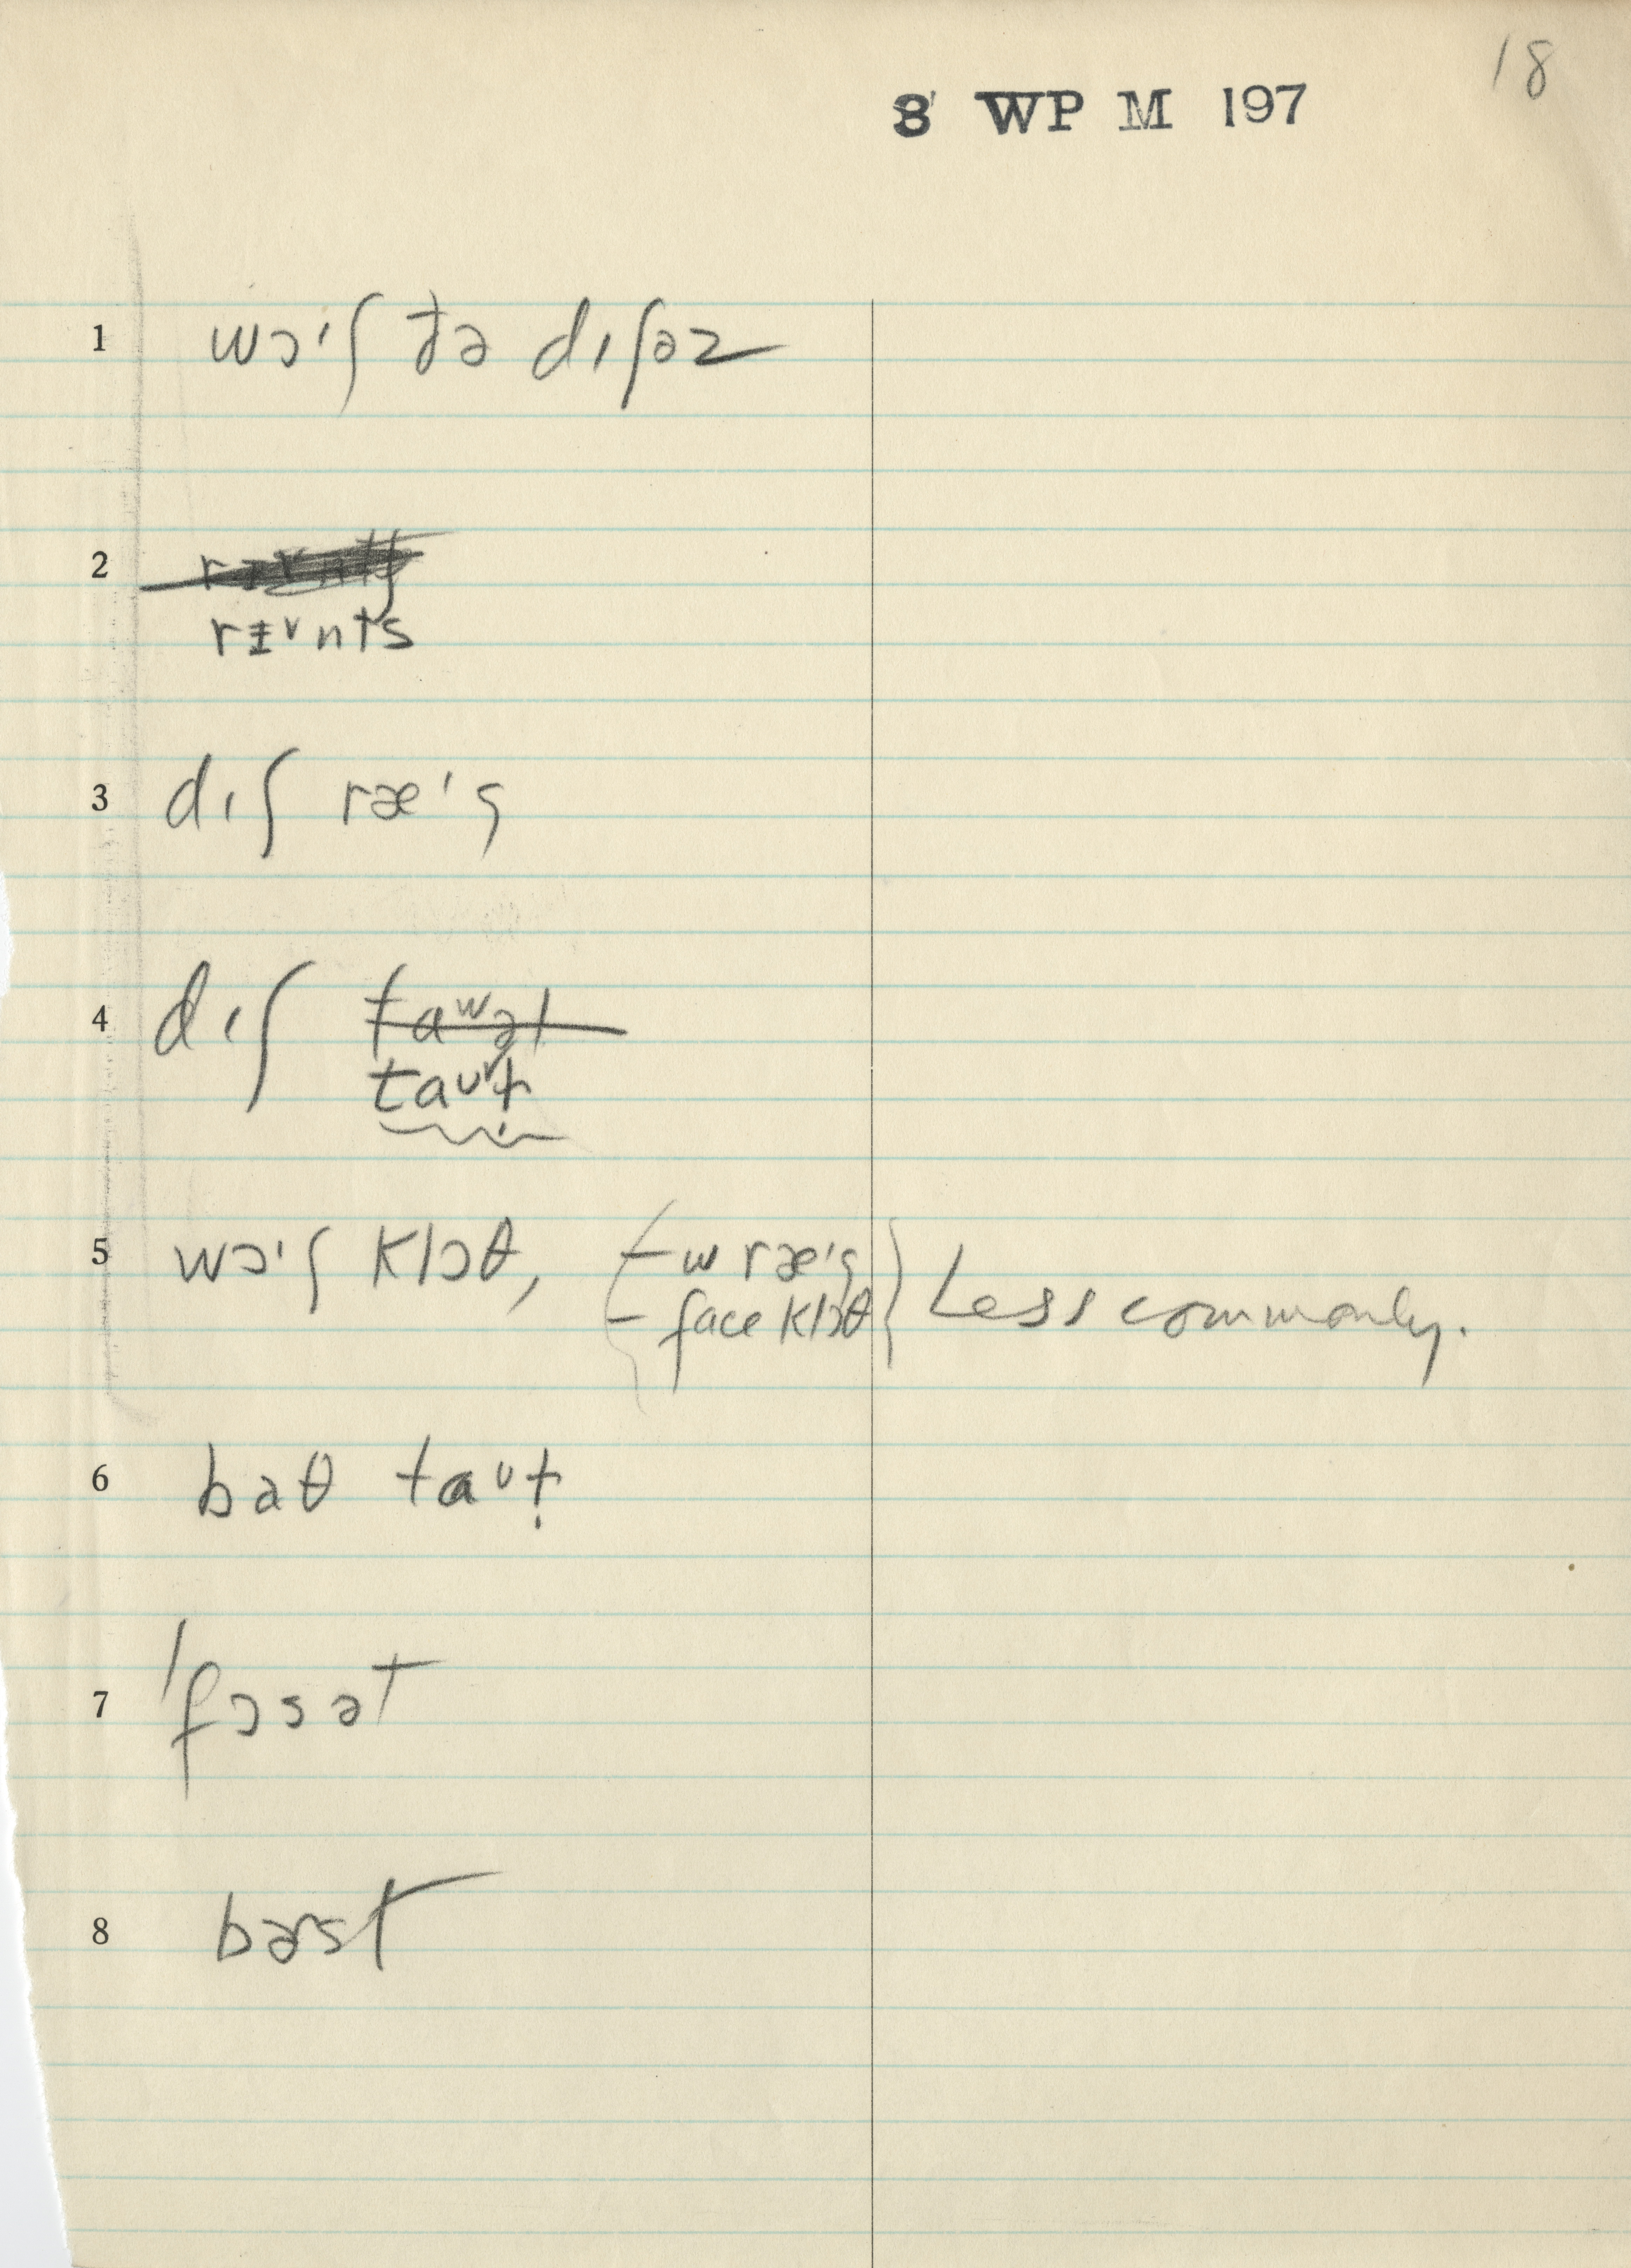 18
8 WP M 197
1 wɔᶦʃ ðə dɪʃəz
2
rɪᵛnts
3 dɪʃ ræᶦg
4 dɪʃ taʷəl
taᶷɫ̣
5 wɔᶦʃ klɔθ, - w ræᶦg
- face klɔθ Less commonly.
6 baθ taᶷɫ̣
7 'fɔsət
8 bɚst